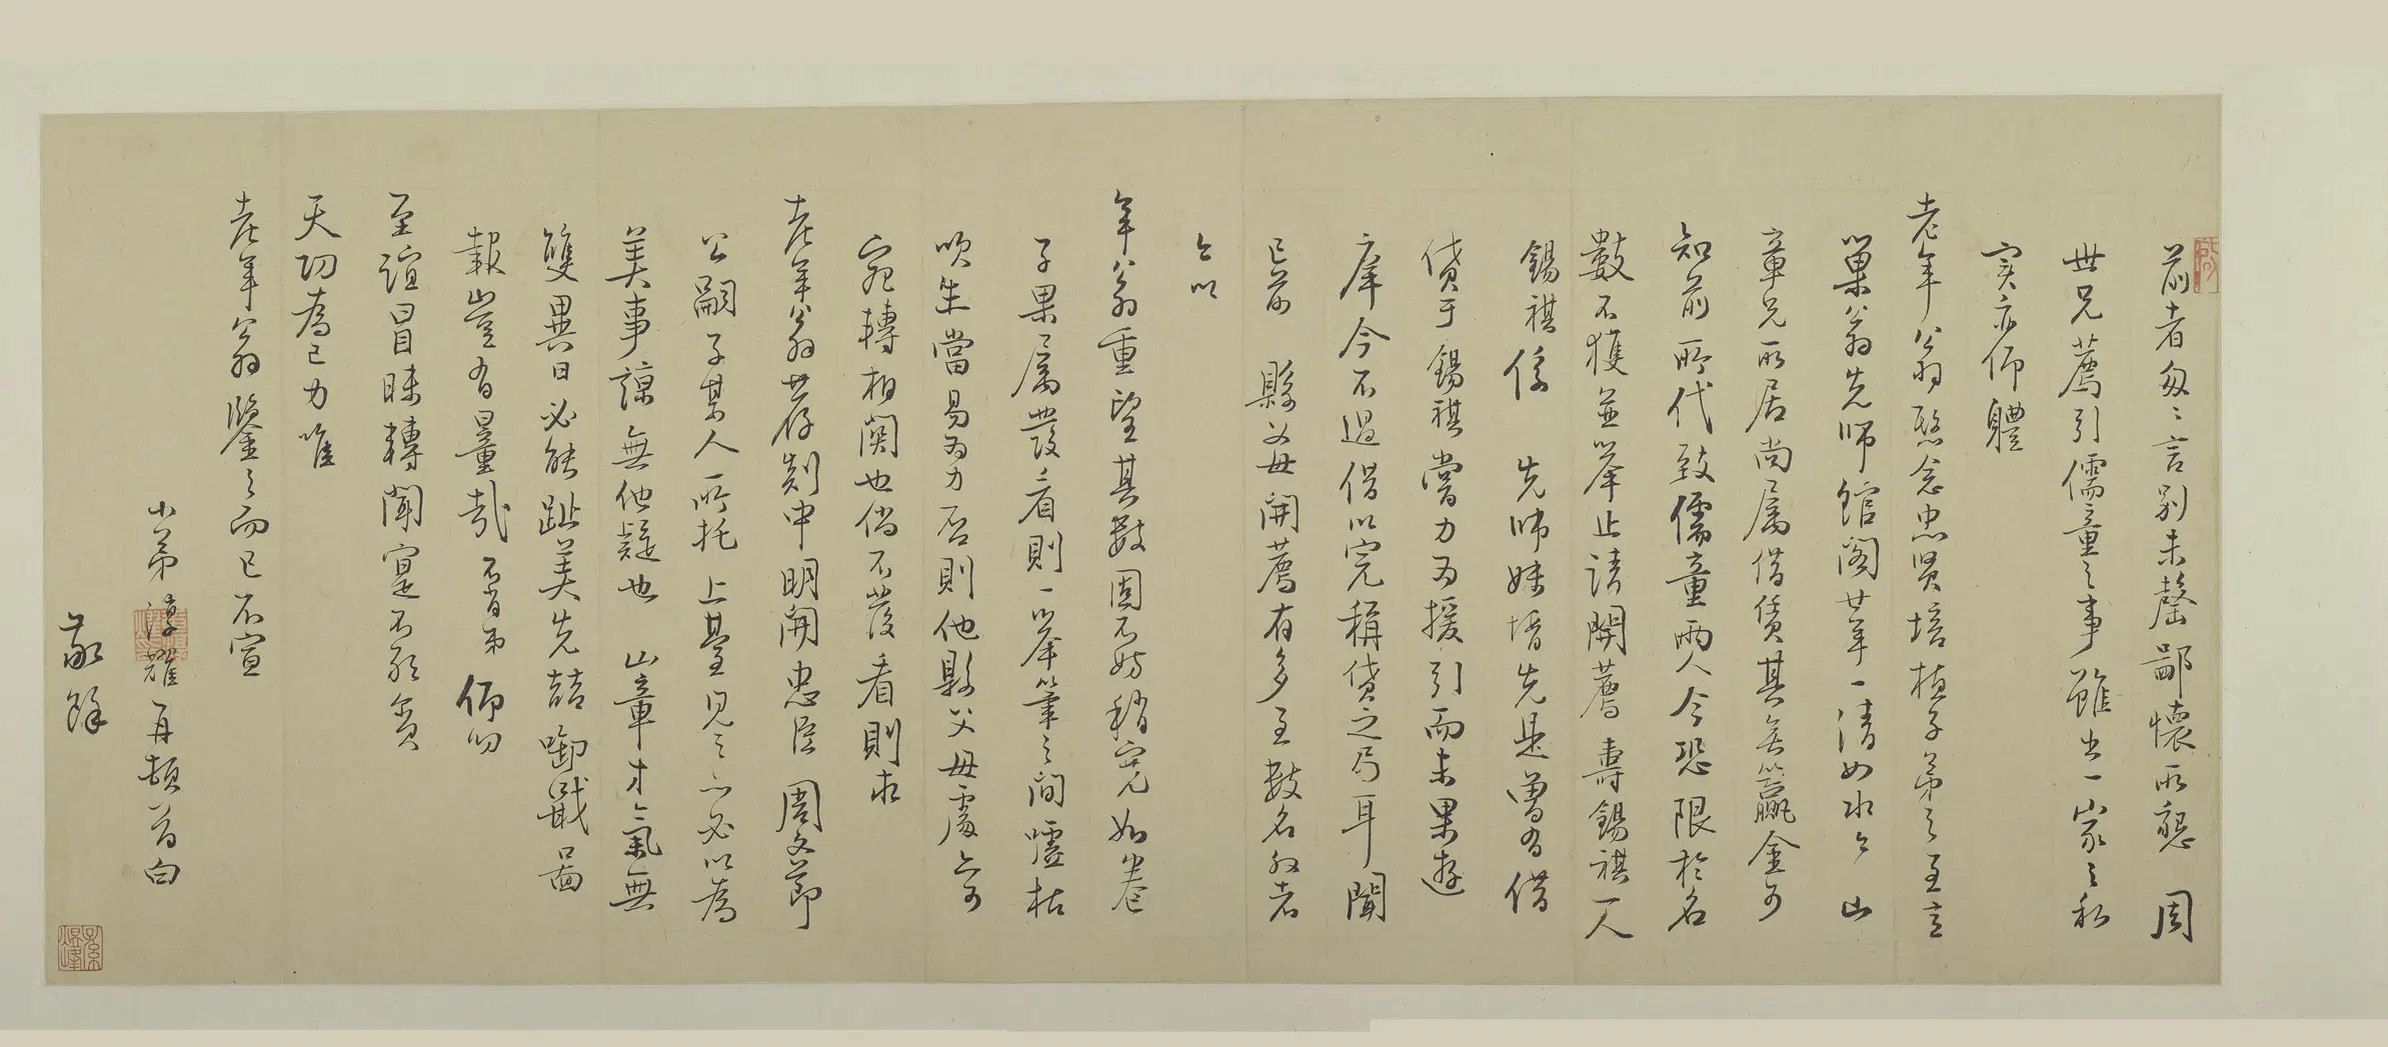 前者匆匆言別未罄鄙懷所懇 周
世兄薦引儒童之事雖出一家之私
實亦仰體
老年公翁慇念忠賢培植子弟之至意
巢翁先師館閣廿年一清如水今 山
章兄所居尚屬借賃其無籯金可
知前所代致儒童兩人今恐限於名
數不獲並舉止請開薦壽錫祺一人
錫祺係 先師妹壻先是曾有借
貸于錫祺嘗力為援引而未果遊
庠今不過借以完稱貸之局耳聞
已前 縣父母開薦有多至數名外者
今以
年公翁重望其數固不妨稍寬如卷
子果屬發看則一舉筆之間噓枯
吹生當易為力否則他縣父母處亦可
宛轉相關也倘不發看則求
老年公翁於薦剡中明開忠臣 周文節
公嗣子某人所托上臺見之亦必以為
美事諒無他疑也 山章才氣無
雙異日必能趾美先喆啣戢圖
報豈有量哉不肖弟仰叨
至誼冒昧轉聞寔不敢貪
天功為已力唯
老年公翁鑒之而已不宣
小弟淳耀再頓首白
敬餘
孫煜峰